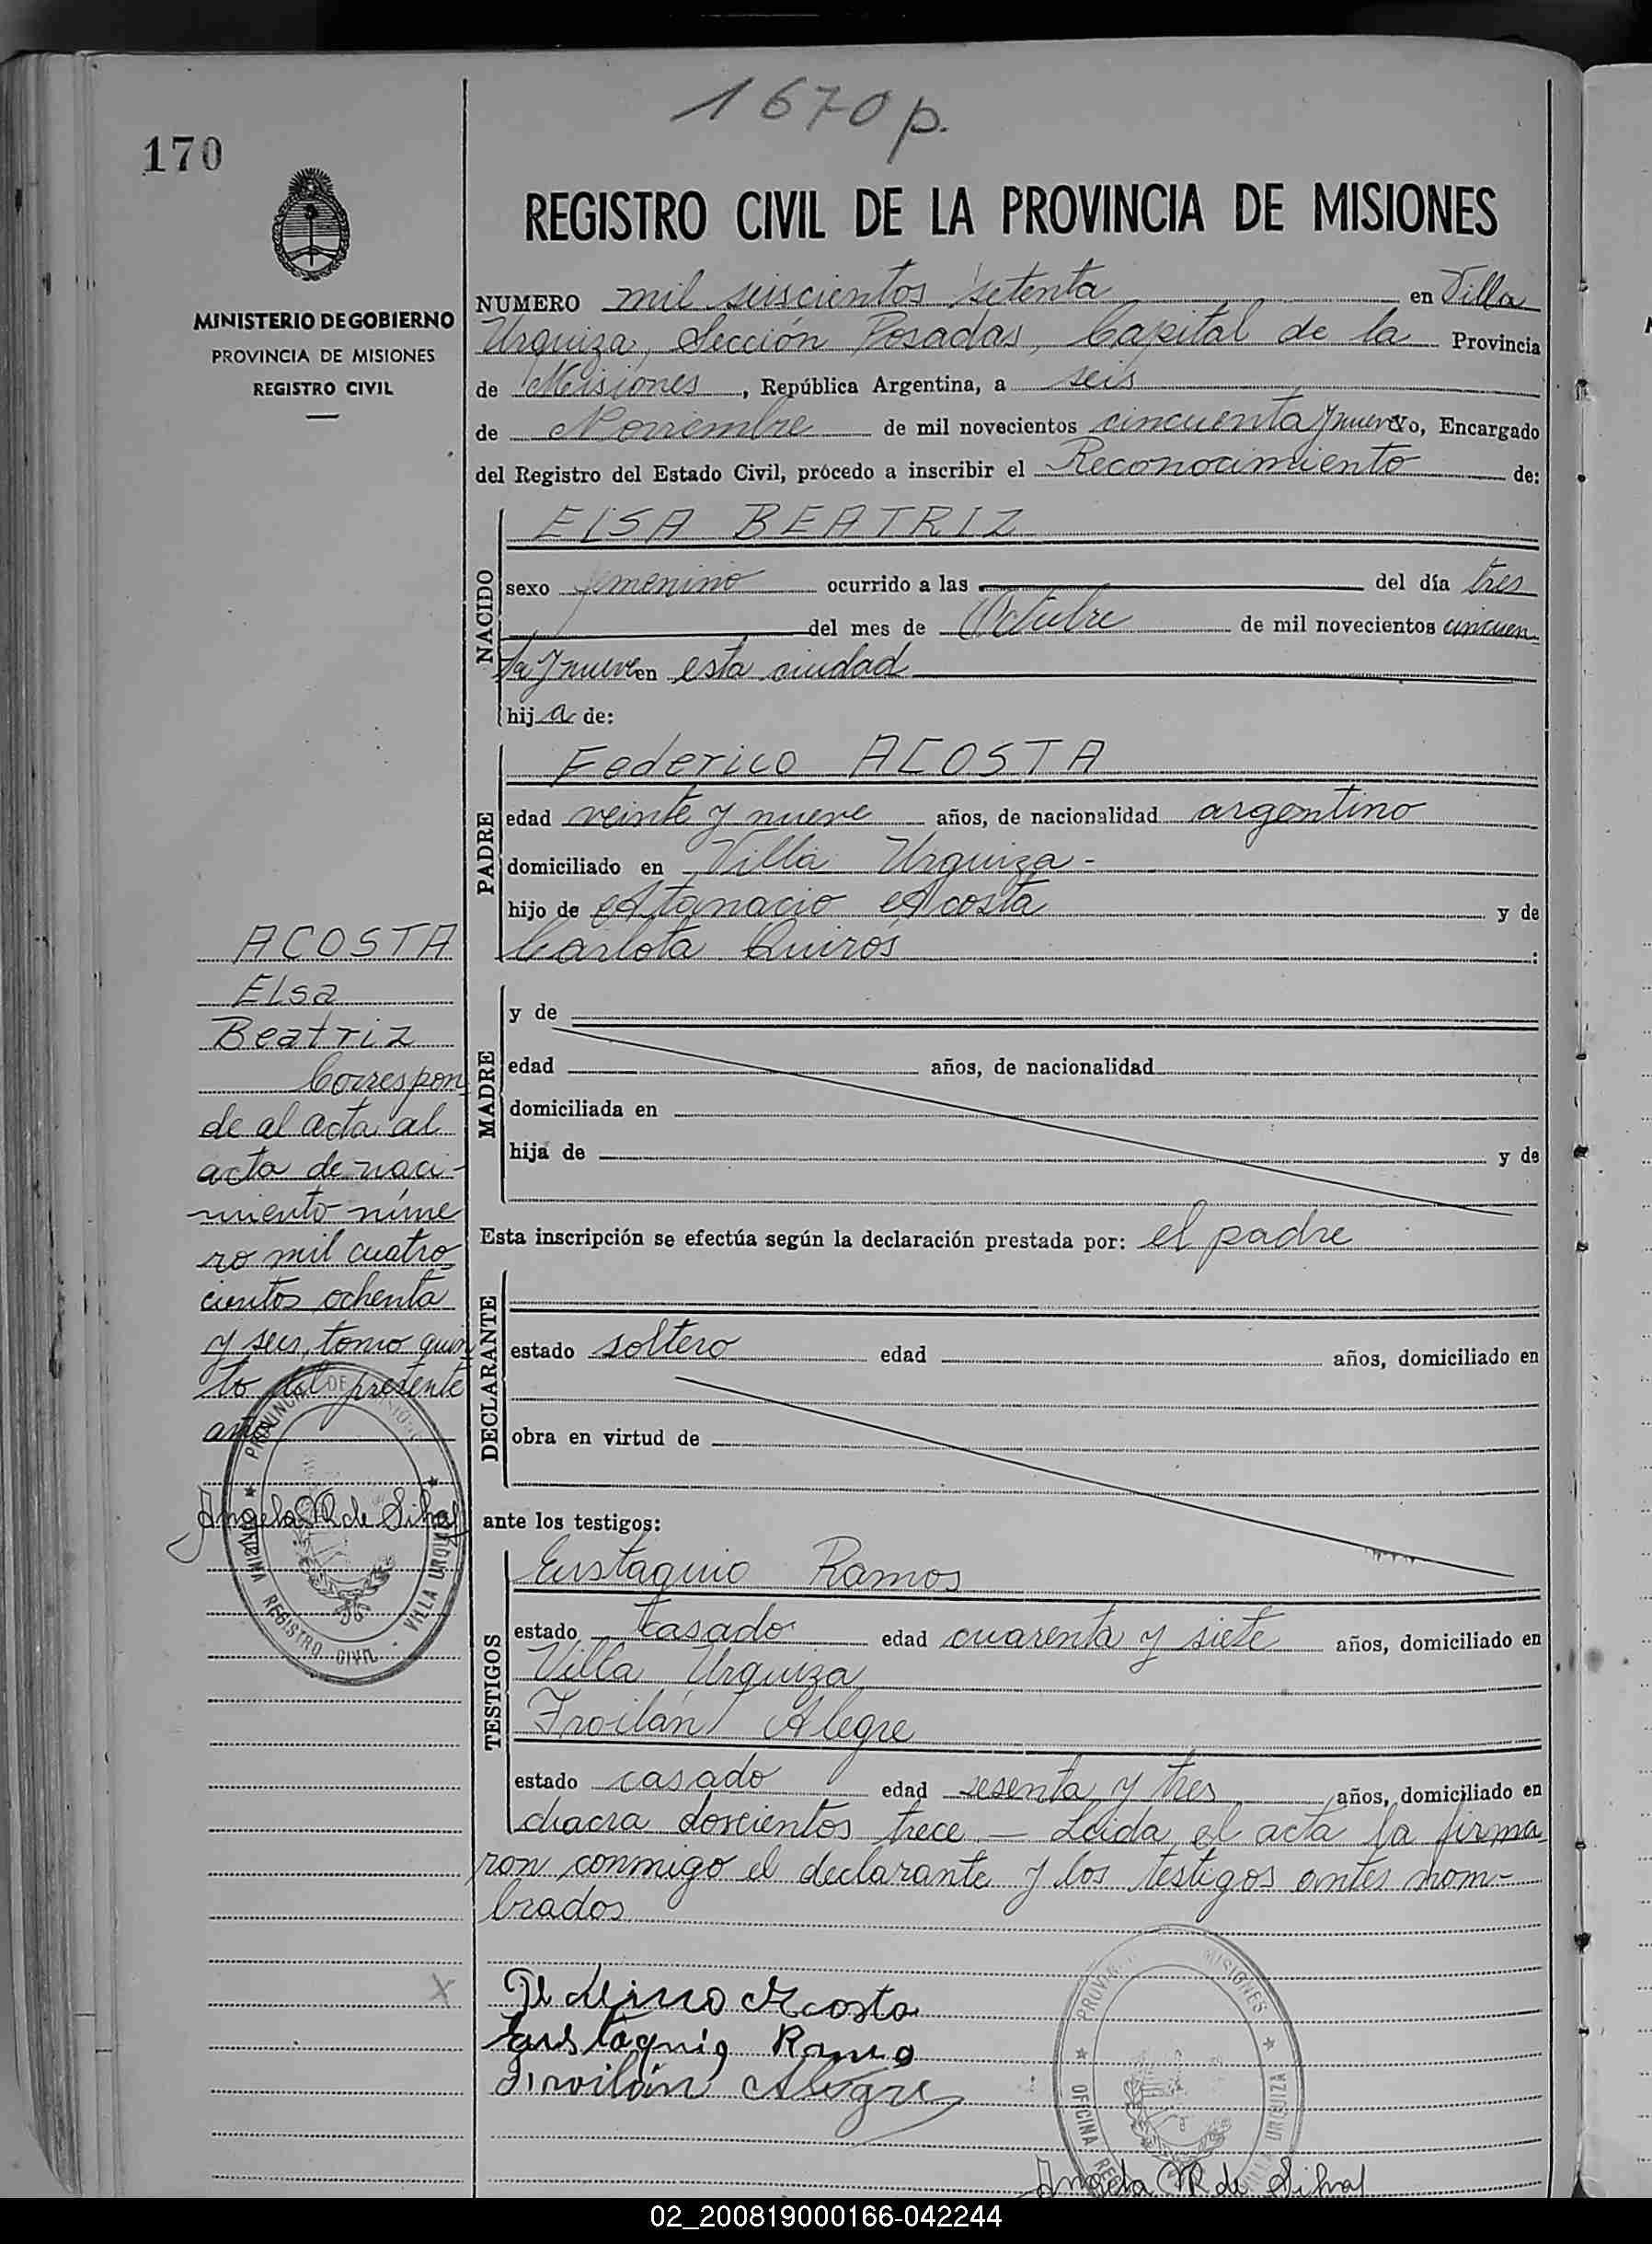 1670 p.
170
REGISTRO CIVIL DE LA PROVINCIA DE MISIONES
MINISTERIO DE GOBIERNO
PROVINCIA DE MISIONES
REGISTRO CIVIL
NUMERO mil seiscientos setenta en Villa
Urquiza, Sección Posadas, Capital de la Provincia
de Misiones, República Argentina, a seis
de Noviembre de mil novecientos cincuenta y nueve yo, Encargado
del Registro del Estado Civil, procedo a inscribir el Reconocimiento de:
NACIDO
ELSA BEATRIZ
sexo femenino ocurrido a las del día tres
del mes de Octubre de mil novecientos cincuen
ta y nueve en esta ciudad
hija de:
PADRE
Federico ACOSTA
edad veinte y nueve años, de nacionalidad argentino
domiciliado en Villa Urquiza -
hijo de Atanacio Acosta y de
Carlota Quirós :
MADRE
y de
edad años, de nacionalidad
domiciliada en
hija de y de
Esta inscripción se efectúa según la declaración prestada por: el padre
DECLARANTE
estado soltero edad años, domiciliado en
obra en virtud de
ante los testigos:
TESTIGOS
Eustaquio Ramos
estado casado edad cuarenta y siete años, domiciliado en
Villa Urquiza
Froilán Alegre
estado casado edad sesenta y tres años, domiciliado en
chacra doscientos trece. — Leida el acta la firma
ron conmigo el declarante y los testigos antes nom-
brados
ACOSTA
Elsa
Beatriz
Correspon
de al acta al
acta de naci-
miento núme
ro mil cuatro
cientos ochenta
y seis, tomo quin
to del presente
año
PROVINCIA DE MISIONES
OFICINA REGISTRO CIVIL - VILLA URQUIZA
Angela R de Silva
Federico Acosta
Eustaquio Ramo
Froilán Alegre
PROVINCIA MISIONES
OFICINA REG VILLA URQUIZA
Angela R de Silva
02_200819000166-042244